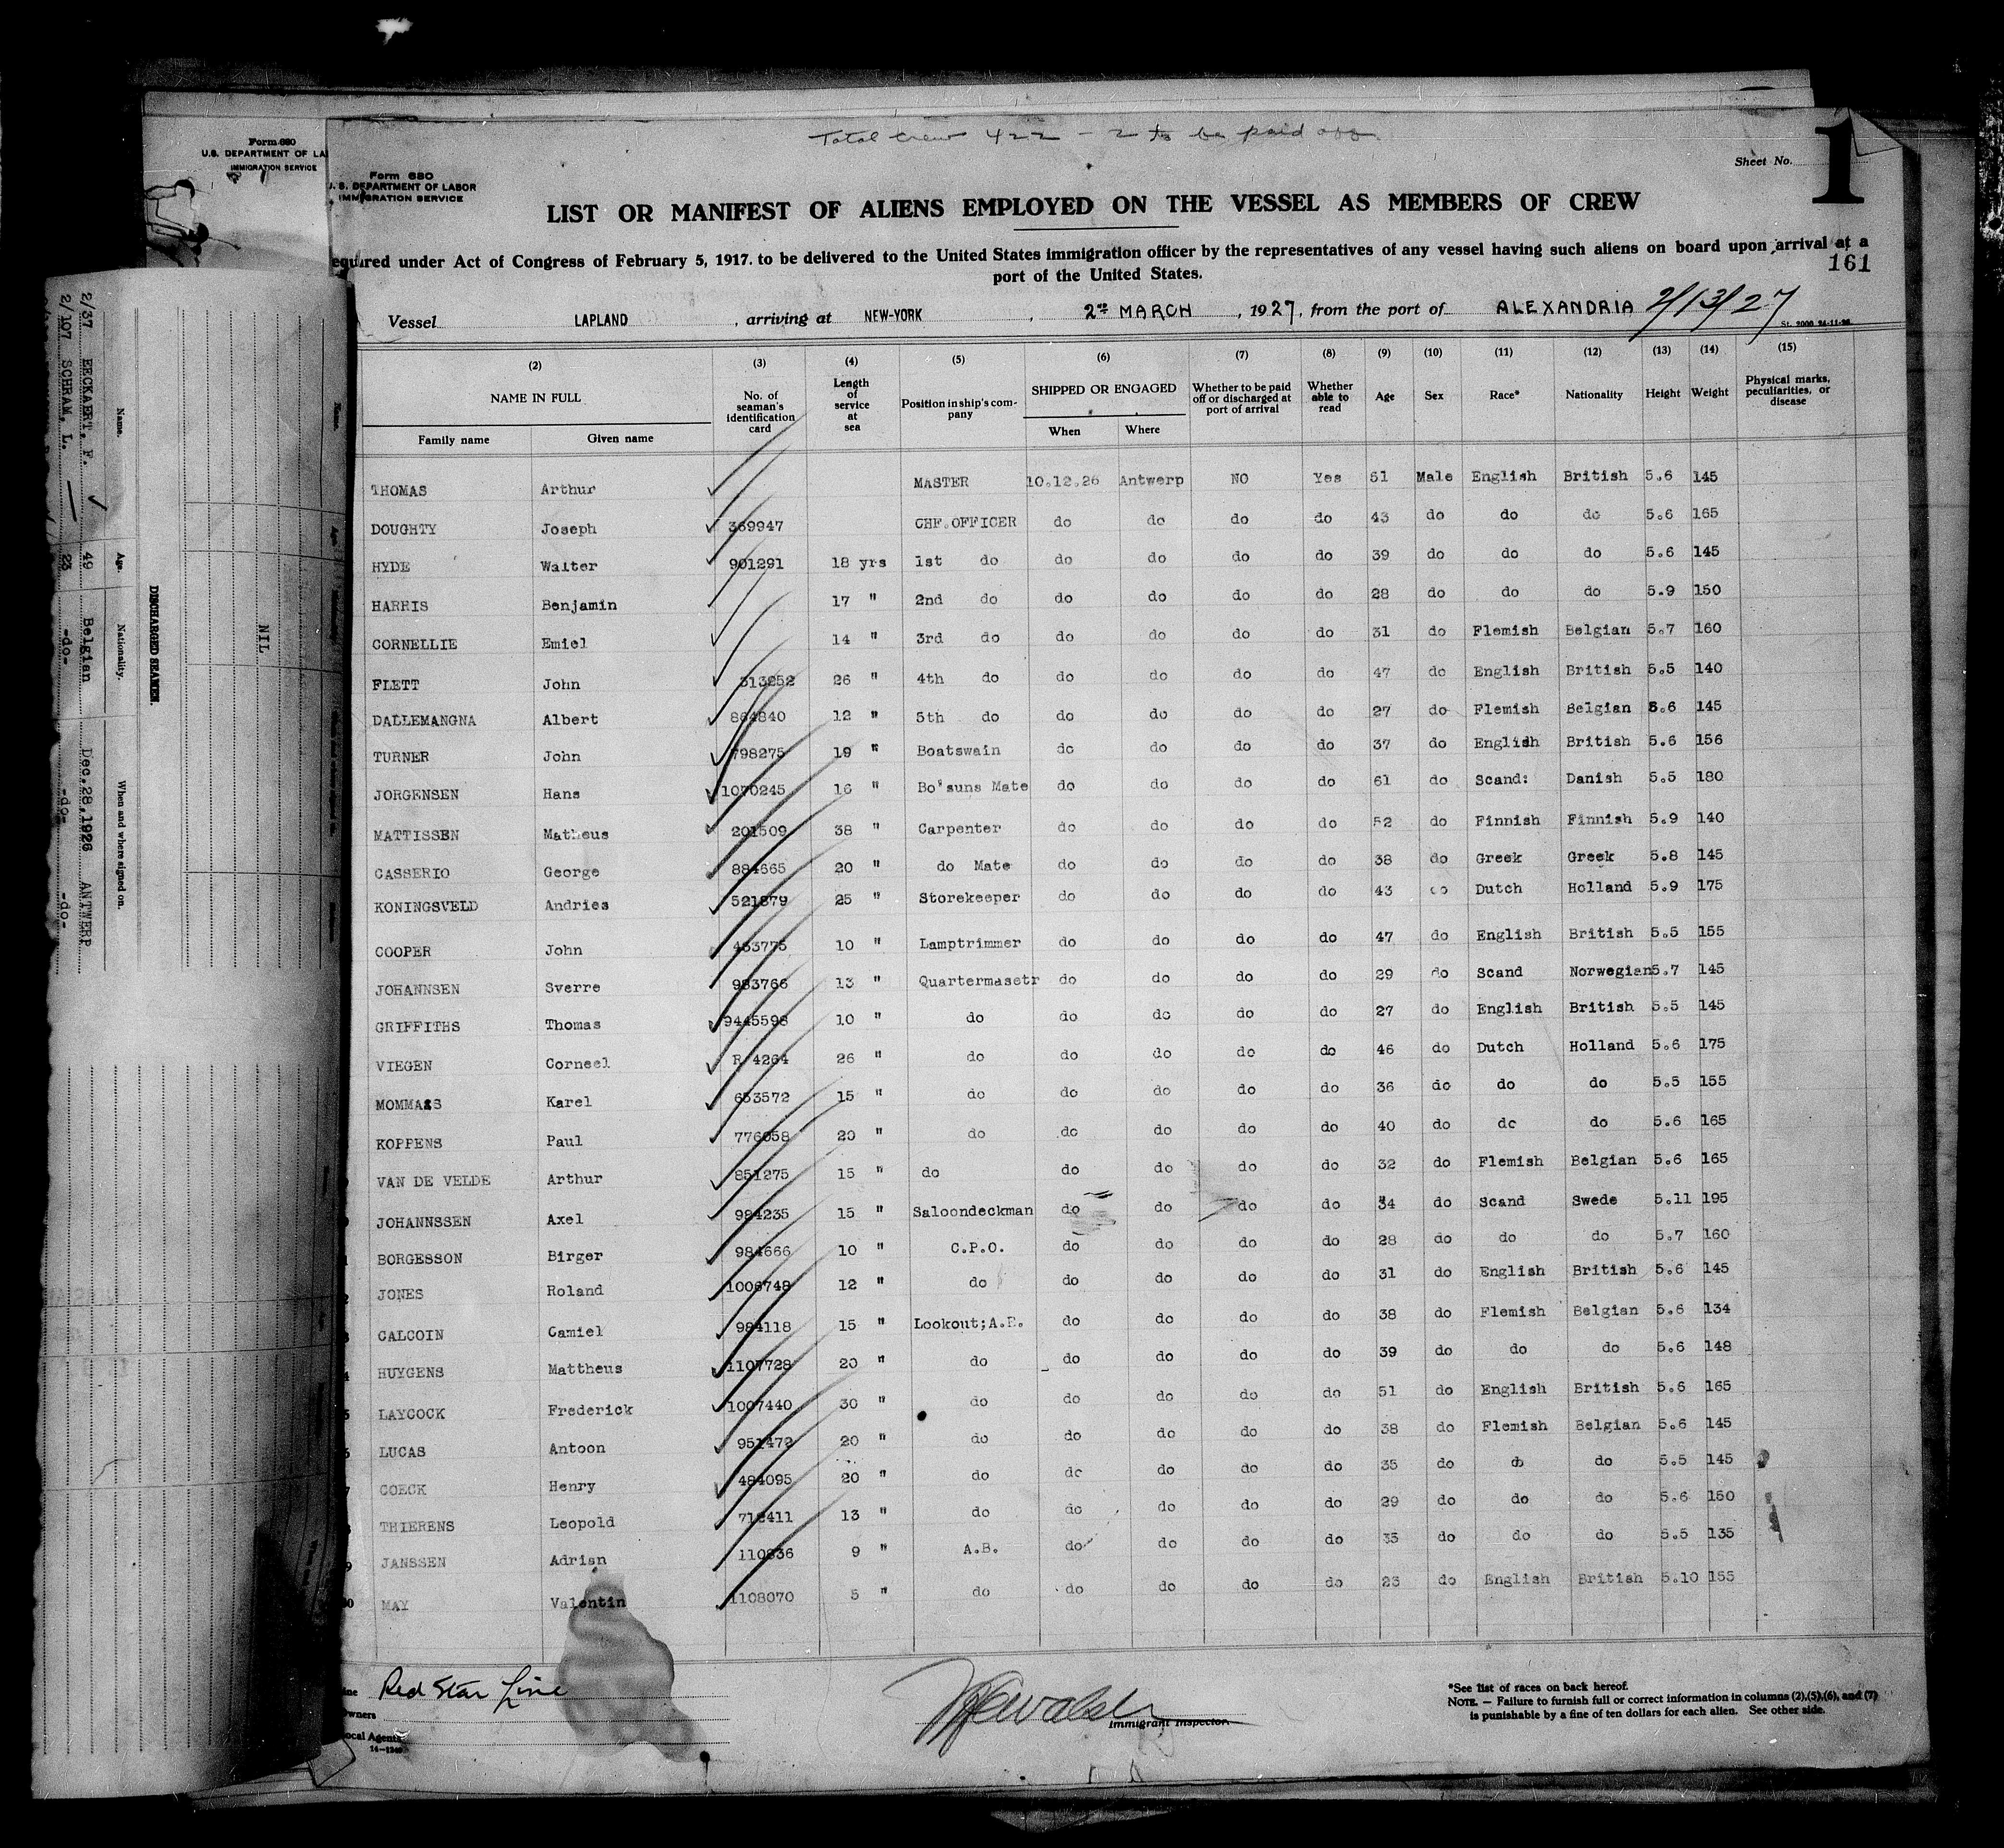 Total crew 422 - 2 to be paid off.
Form 680
U.S. DEPARTMENT OF LA
IMMIGRATION SERVICE
Form 680
U. S. DEPARTMENT OF LABOR
IMMIGRATION SERVICE
Sheet No. 1
LIST OR MANIFEST OF ALIENS EMPLOYED ON THE VESSEL AS MEMBERS OF CREW
equired under Act of Congress of February 5, 1917. to be delivered to the United States immigration officer by the representatives of any vessel having such aliens on board upon arrival at a
port of the United States.
161
Vessel LAPLAND , arriving at NEW-YORK , 2nd MARCH , 1927, from the port of ALEXANDRIA 2/13/27
St. 2000 24-11-26
(2) (3) (4) (5) (6) (7) (8) (9) (10) (11) (12) (13) (14) (15)
NAME IN FULL No. of seaman's identification card Length of service at sea Position in ship's company SHIPPED OR ENGAGED Whether to be paid off or discharged at port of arrival Whether able to read Age Sex Race* Nationality Height Weight Physical marks, peculiarities, or disease
Family name Given name When Where
THOMAS Arthur MASTER 10.12.26 Antwerp NO Yes 51 Male English British 5.6 145
DOUGHTY Joseph 369947 CHF.OFFICER do do do do 43 do do do 5.6 165
HYDE Walter 901291 18 yrs 1st do do do do do 39 do do do 5.6 145
HARRIS Benjamin 17 " 2nd do do do do do 28 do do do 5.9 150
CORNELLIE Emiel 14 " 3rd do do do do do 31 do Flemish Belgian 5.7 160
FLETT John 313252 26 " 4th do do do do do 47 do English British 5.5 140
DALLEMANGNA Albert 864840 12 " 5th do do do do do 27 do Flemish Belgian 5.6 145
TURNER John 798275 19 " Boatswain do do do do 37 do English British 5.6 156
JORGENSEN Hans 1070245 16 " Bo'suns Mate do do do do 61 do Scand: Danish 5.5 180
MATTISSEN Matheus 201509 38 " Carpenter do do do do 52 do Finnish Finnish 5.9 140
CASSERIO George 884665 20 " do Mate do do do do 38 do Greek Greek 5.8 145
KONINGSVELD Andries 521879 25 " Storekeeper do do do do 43 do Dutch Holland 5.9 175
COOPER John 453775 10 " Lamptrimmer do do do do 47 do English British 5.5 155
JOHANNSEN Sverre 983766 13 " Quartermasetr do do do do 29 do Scand Norwegian 5.7 145
GRIFFITHS Thomas 9445598 10 " do do do do do 27 do English British 5.5 145
VIEGEN Corneel R/4264 26 " do do do do do 46 do Dutch Holland 5.6 175
MOMMAAS Karel 653572 15 " do do do do do 36 do do do 5.5 155
KOPPENS Paul 776058 20 " do do do do do 40 do do do 5.6 165
VAN DE VELDE Arthur 851275 15 " do do do do do 32 do Flemish Belgian 5.6 165
JOHANNSSEN Axel 984235 15 " Saloondeckman do do do do 34 do Scand Swede 5.11 195
BORGESSON Birger 984666 10 " C.P.O. do do do do 28 do do do 5.7 160
JONES Roland 1006748 12 " do do do do do 31 do English British 5.6 145
CALCOIN Camiel 984118 15 " Lookout;A.B. do do do do 38 do Flemish Belgian 5.6 134
HUYGENS Mattheus 1107728 20 " do do do do do 39 do do do 5.6 148
LAYCOCK Frederick 1007440 30 " do do do do do 51 do English British 5.6 165
LUCAS Antoon 951472 20 " do do do do do 38 do Flemish Belgian 5.6 145
COECK Henry 484095 20 " do do do do do 35 do do do 5.5 145
THIERENS Leopold 712411 13 " do do do do do 29 do do do 5.6 150
JANSSEN Adrian 110836 9 " A.B. do do do do 35 do do do 5.5 135
MAY Valentin 1108070 5 " do do do do do 23 do English British 5.10 155
Red Star Line
wners
ocal Agents
14-1240
Immigrant Inspector.
*See list of races on back hereof.
NOTE. — Failure to furnish full or correct information in columns (2),(5),(6), and (7)
is punishable by a fine of ten dollars for each alien. See other side.
NIL
DISCHARGED SEAMEN.
Name. Age. Nationality. When and where signed on.
2/37 EECKAERT, F. 49 Belgian Dec.28,1926 ANTWERP
2/107 SCHRAM, L. 23 -do- -do- -do-